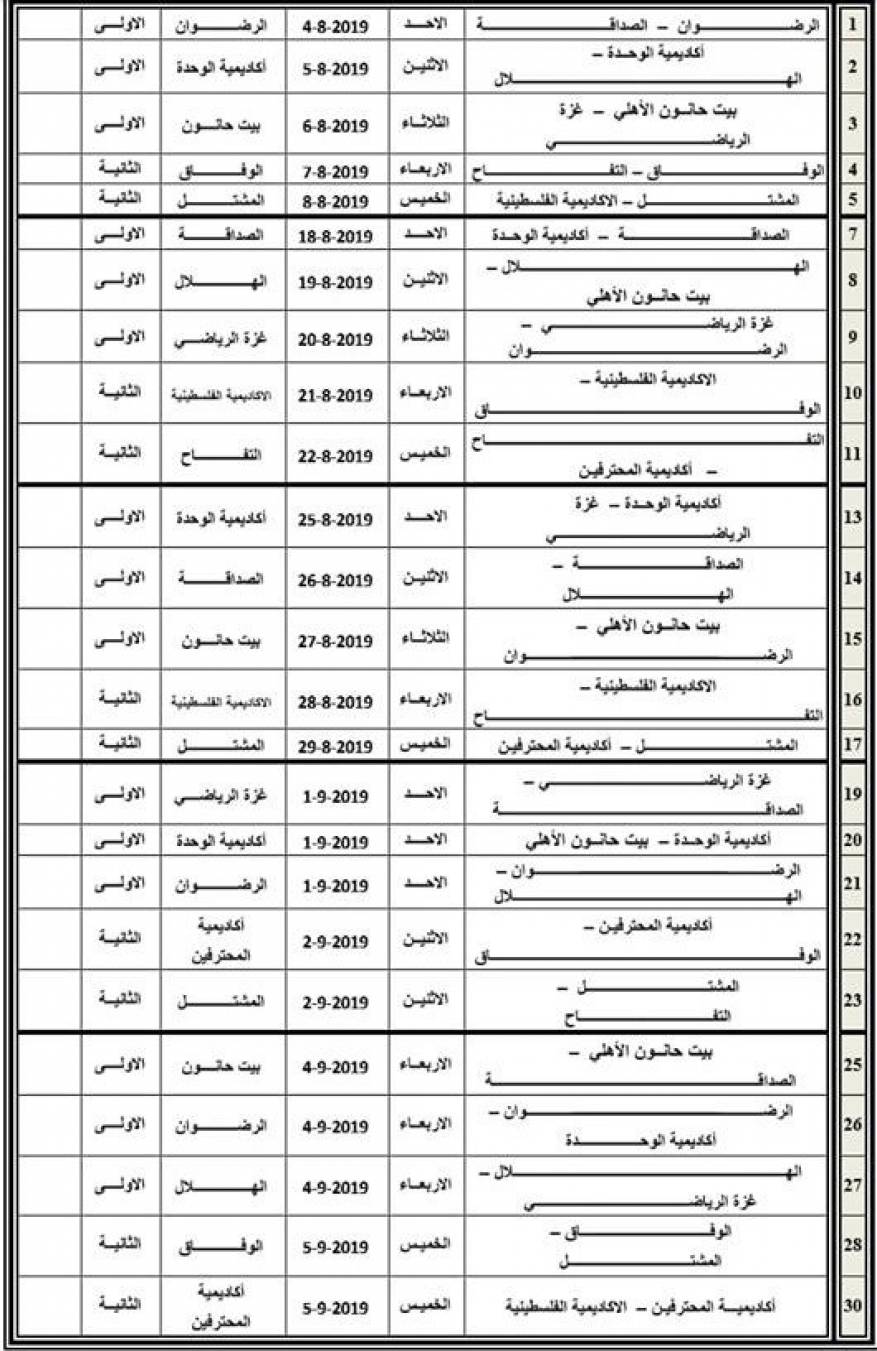 1 الرضوان – الصداقة الاحد 4-8-2019 الرضوان الاولى
2 أكاديمية الوحدة – الهلال الاثنين 5-8-2019 أكاديمية الوحدة الاولى
3 بيت حانون الأهلي – غزة الرياضي الثلاثاء 6-8-2019 بيت حانون الاولى
4 الوفاق – التفاح الاربعاء 7-8-2019 الوفاق الثانية
5 المشتل – الاكاديمية الفلسطينية الخميس 8-8-2019 المشتل الثانية
7 الصداقة – أكاديمية الوحدة الاحد 18-8-2019 الصداقة الاولى
8 الهلال – بيت حانون الأهلي الاثنين 19-8-2019 الهلال الاولى
9 غزة الرياضي – الرضوان الثلاثاء 20-8-2019 غزة الرياضي الاولى
10 الاكاديمية الفلسطينية – الوفاق الاربعاء 21-8-2019 الاكاديمية الفلسطينية الثانية
11 التفاح – أكاديمية المحترفين الخميس 22-8-2019 التفاح الثانية
13 أكاديمية الوحدة – غزة الرياضي الاحد 25-8-2019 أكاديمية الوحدة الاولى
14 الصداقة – الهلال الاثنين 26-8-2019 الصداقة الاولى
15 بيت حانون الأهلي – الرضوان الثلاثاء 27-8-2019 بيت حانون الاولى
16 الاكاديمية الفلسطينية – التفاح الاربعاء 28-8-2019 الاكاديمية الفلسطينية الثانية
17 المشتل – أكاديمية المحترفين الخميس 29-8-2019 المشتل الثانية
19 غزة الرياضي – الصداقة الاحد 1-9-2019 غزة الرياضي الاولى
20 أكاديمية الوحدة – بيت حانون الأهلي الاحد 1-9-2019 أكاديمية الوحدة الاولى
21 الرضوان – الهلال الاحد 1-9-2019 الرضوان الاولى
22 أكاديمية المحترفين – الوفاق الاثنين 2-9-2019 أكاديمية المحترفين الثانية
23 المشتل – التفاح الاثنين 2-9-2019 المشتل الثانية
25 بيت حانون الأهلي – الصداقة الاربعاء 4-9-2019 بيت حانون الاولى
26 الرضوان – أكاديمية الوحدة الاربعاء 4-9-2019 الرضوان الاولى
27 الهلال – غزة الرياضي الاربعاء 4-9-2019 الهلال الاولى
28 الوفاق – المشتل الخميس 5-9-2019 الوفاق الثانية
30 أكاديمية المحترفين – الاكاديمية الفلسطينية الخميس 5-9-2019 أكاديمية المحترفين الثانية